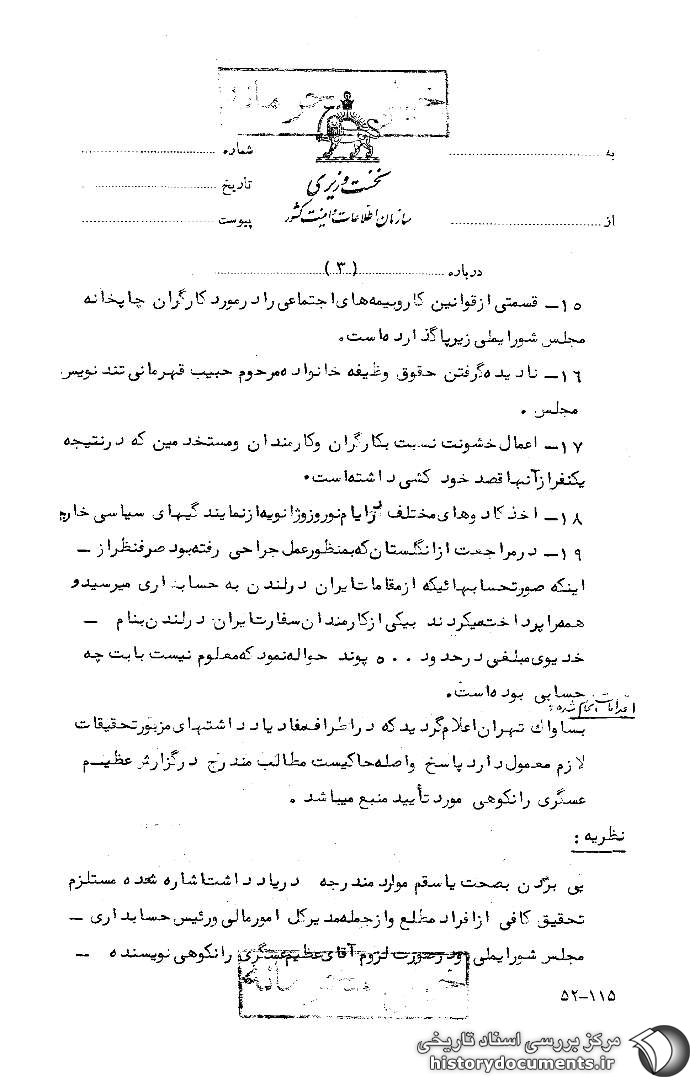 خیلی محرمانه
به
شماره
نخست وزیری
تاریخ
سازمان اطلاعات و امنیت کشور
از
پیوست
درباره (۳)
۱۵ــ قسمتی از قوانین کار و بیمه‌های اجتماعی را در مورد کارگران چاپخانه
مجلس شورایملی زیر پا گذارده است.
۱۶ــ نادیده گرفتن حقوق وظیفه خانواده مرحوم حبیب قهرمانی تند نویس
مجلس .
۱۷ــ اعمال خشونت نسبت بکارگران وکارمندان ومستخدمین که درنتیجه
یکنفر از آنها قصد خود کشی داشته است.
۱۸ــ اخذ کادوهای مختلف در ایام نوروز و ژانویه از نمایندگیهای سیاسی خارجی
۱۹ــ در مراجعت از انگلستان که بمنظور عمل جراحی رفته بود صرفنظر از ــ
اینکه صورتحسابهائیکه از مقامات ایران در لندن به حسابداری میرسید و
همه را پرداخت میکردند بیکی از کارمندان سفارت ایران در لندن بنام ــ
خدیوی مبلغی در حدود ۵۰۰ پوند حواله نمود که معلوم نیست بابت چه
حسابی بوده است.
اقدامات انجام شده :
بساواک تهران اعلام گردید که در اطراف مفاد یادداشتهای مزبور تحقیقات
لازم معمول دارد پاسخ واصله حاکیست مطالب مندرج درگزارش عظیم
عسگری رانکوهی مورد تأیید منبع میباشد .
نظریه :
پی بردن بصحت یا سقم موارد مندرجه در یادداشت اشاره شده مستلزم
تحقیق کافی از افراد مطلع و از جمله مدیرکل امور مالی و رئیس حسابداری ــ
مجلس شورایملی و در صورت لزوم آقای عظیم عسگری رانکوهی نویسنده ــ
۵۲-۱۱۵
مرکز بررسی اسناد تاریخی
historydocuments.ir